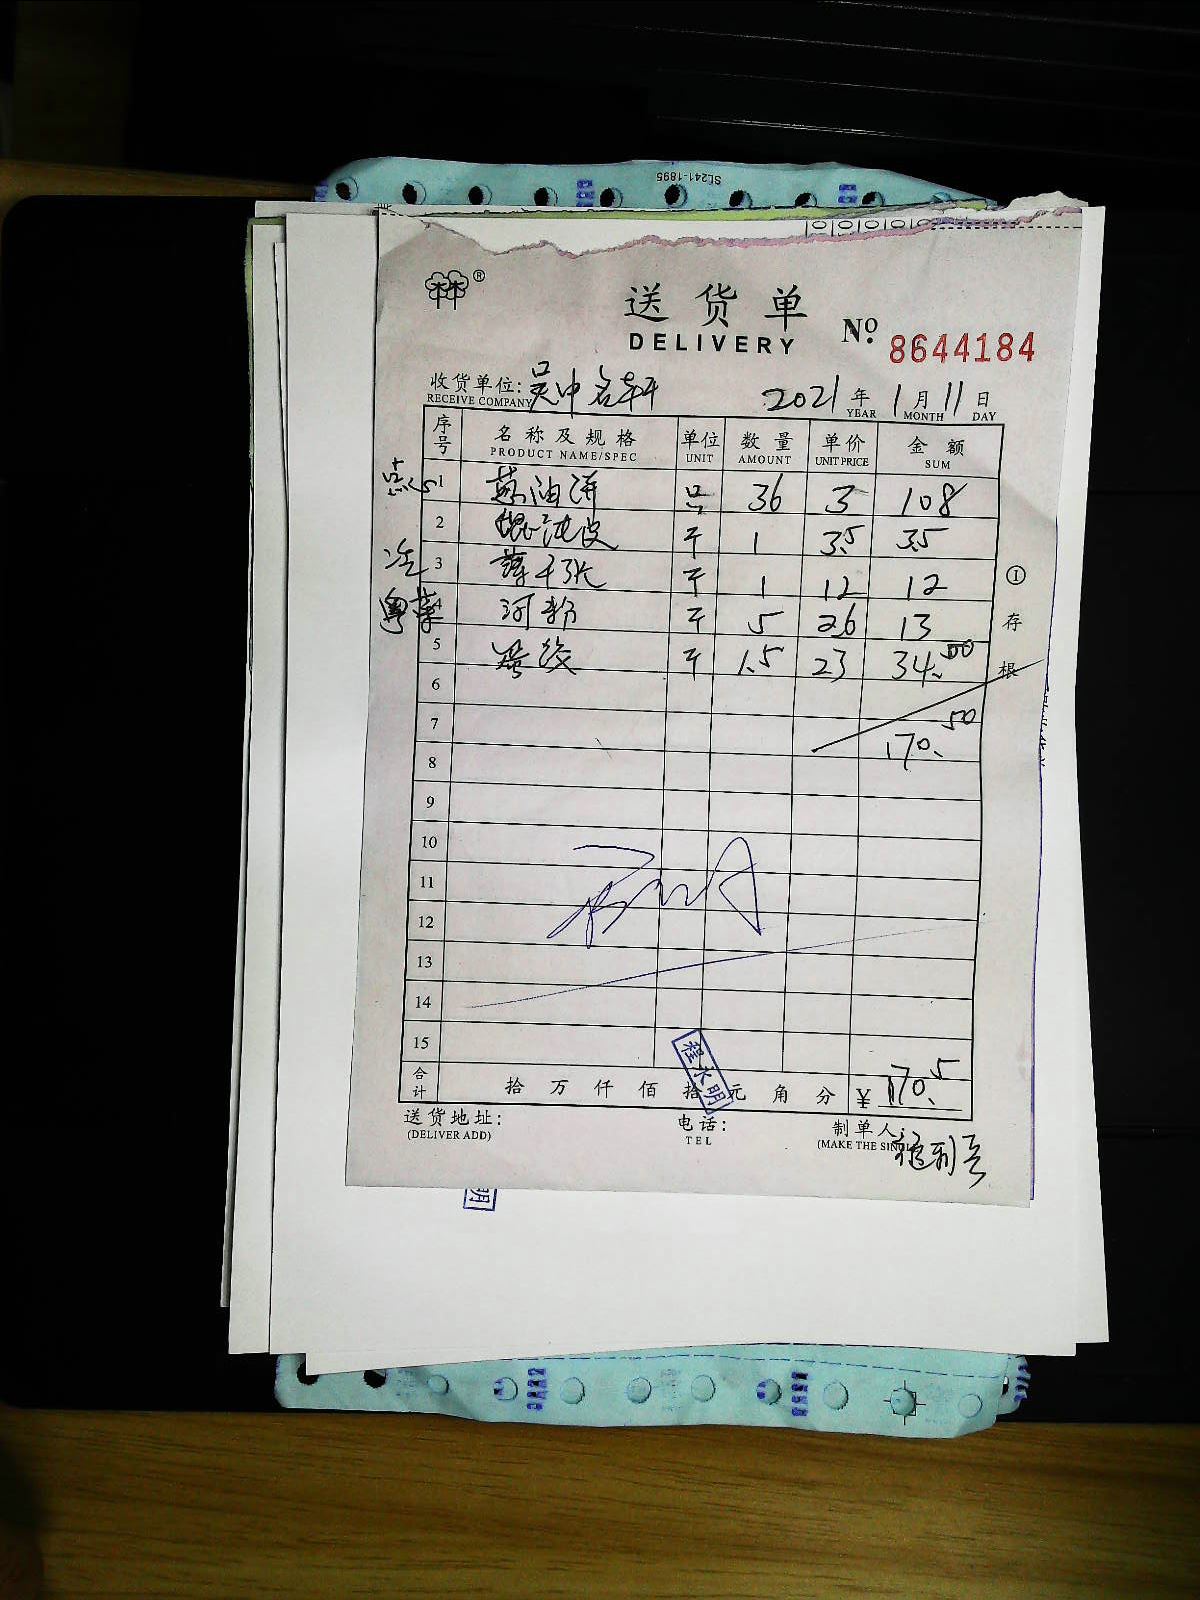 SL241-1895
®
送货单
DELIVERY
No. 8644184
收货单位: 吴中名轩
RECEIVE COMPANY
2021 年 1 月 11 日
YEAR MONTH DAY
序号 名称及规格 单位 数量 单价 金额
PRODUCT NAME/SPEC UNIT AMOUNT UNIT PRICE SUM
点心 1 苏油饼 只 36 3 108
2 馄沌皮 斤 1 3.5 3.5
冷 3 薄千张 斤 1 12 12
粤菜 4 河粉 斤 5 2.6 13
5 斤 1.5 23 34.50
6
7 170.50
8
9
10
11
12
13
14
15
合计 拾 万 仟 佰 拾 元 角 分 ¥ 170.5
程永明
送货地址: 电话: 制单人:
(DELIVER ADD) TEL (MAKE THE SINGL
①存根
明